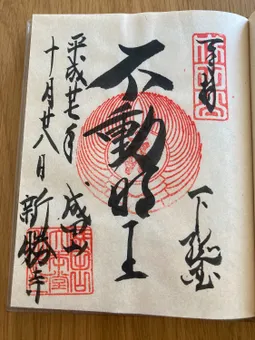 奉拝
下総国
不動明王
成田山
新勝寺
平成廿七年
十月廿八日